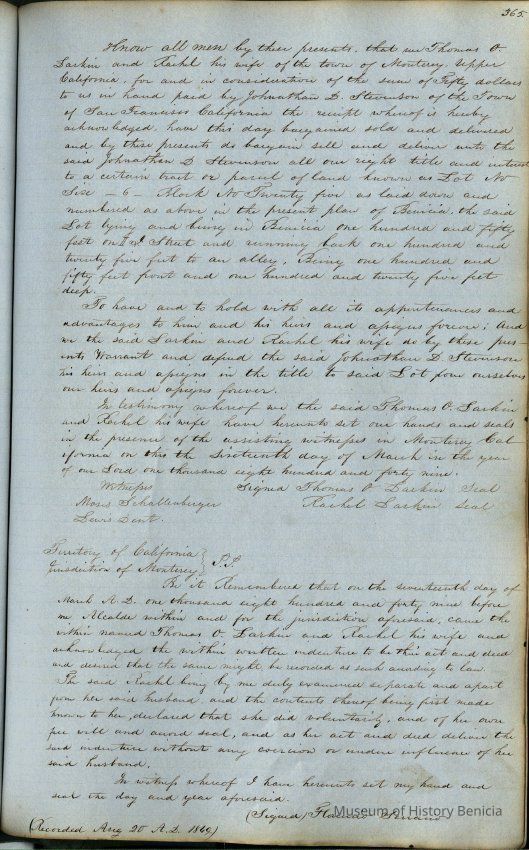 365
Know all men by these presents, that we Thomas O
Larkin and Rachel his wife of the town of Monterey Upper
California, for and in consideration of the sum of Fifty dollars
to us in hand paid by Johnathan D. Stevenson of the Town
of San Francisco California the receipt whereof is hereby
acknowledged, have this day bargained sold and delivered
and by these presents do bargain sell and deliver unto the
said Johnathan D Stevenson all our right title and interest
to a certain tract or parcel of land known as Lot No
Six - 6 - Block No Twenty five as laid down and
numbered as above in the present plan of Benicia, the said
Lot lying and being in Benicia one hundred and fifty
feet on Street and running back one hundred and
twenty five feet to an alley, Being one hundred and
fifty feet front and one hundred and twenty five feet
deep.
To have and to hold with all its appurtenances and
advantages to him and his heirs and assigns forever; And
we the said Larkin and Rachel his wife do by these pres-
ents Warrant and defend the said Johnathan D. Stevenson
his heirs and assigns in the title to said Lot from ourselves
our heirs and assigns forever.
In testimony whereof we the said Thomas O. Larkin
and Rachel his wife have hereunto set our hands and seals
in the presence of the assisting witnesses in Monterey Cal
ifornia on this the Sixteenth day of March in the year
of our Lord one thousand eight hundred and forty nine.
Witness Signed Thomas O Larkin Seal
Moses Schallenberger Rachel Larkin Seal
Lewis Dent.
Territory of California
Jurisdiction of Monterey } S.S.
Be it Remembered that on the seventeenth day of
March A.D. one thousand eight hundred and forty nine before
me Alcalde within and for the jurisdiction aforesaid, came the
within named Thomas O Larkin and Rachel his wife and
acknowledged the within written indenture to be their act and deed
and desired that the same might be recorded as such according to law.
The said Rachel being by me duly examined separate and apart
from her said husband, and the contents thereof being first made
known to her, declared that she did voluntarily, and of her own
free will and accord seal, and as her act and deed deliver the
said indenture without any coercion or undue influence of her
said husband.
In witness whereof I have hereunto set my hand and
seal the day and year aforesaid.
(Signed)
(Recorded Aug 20 A.D. 1849)
Museum of History Benicia